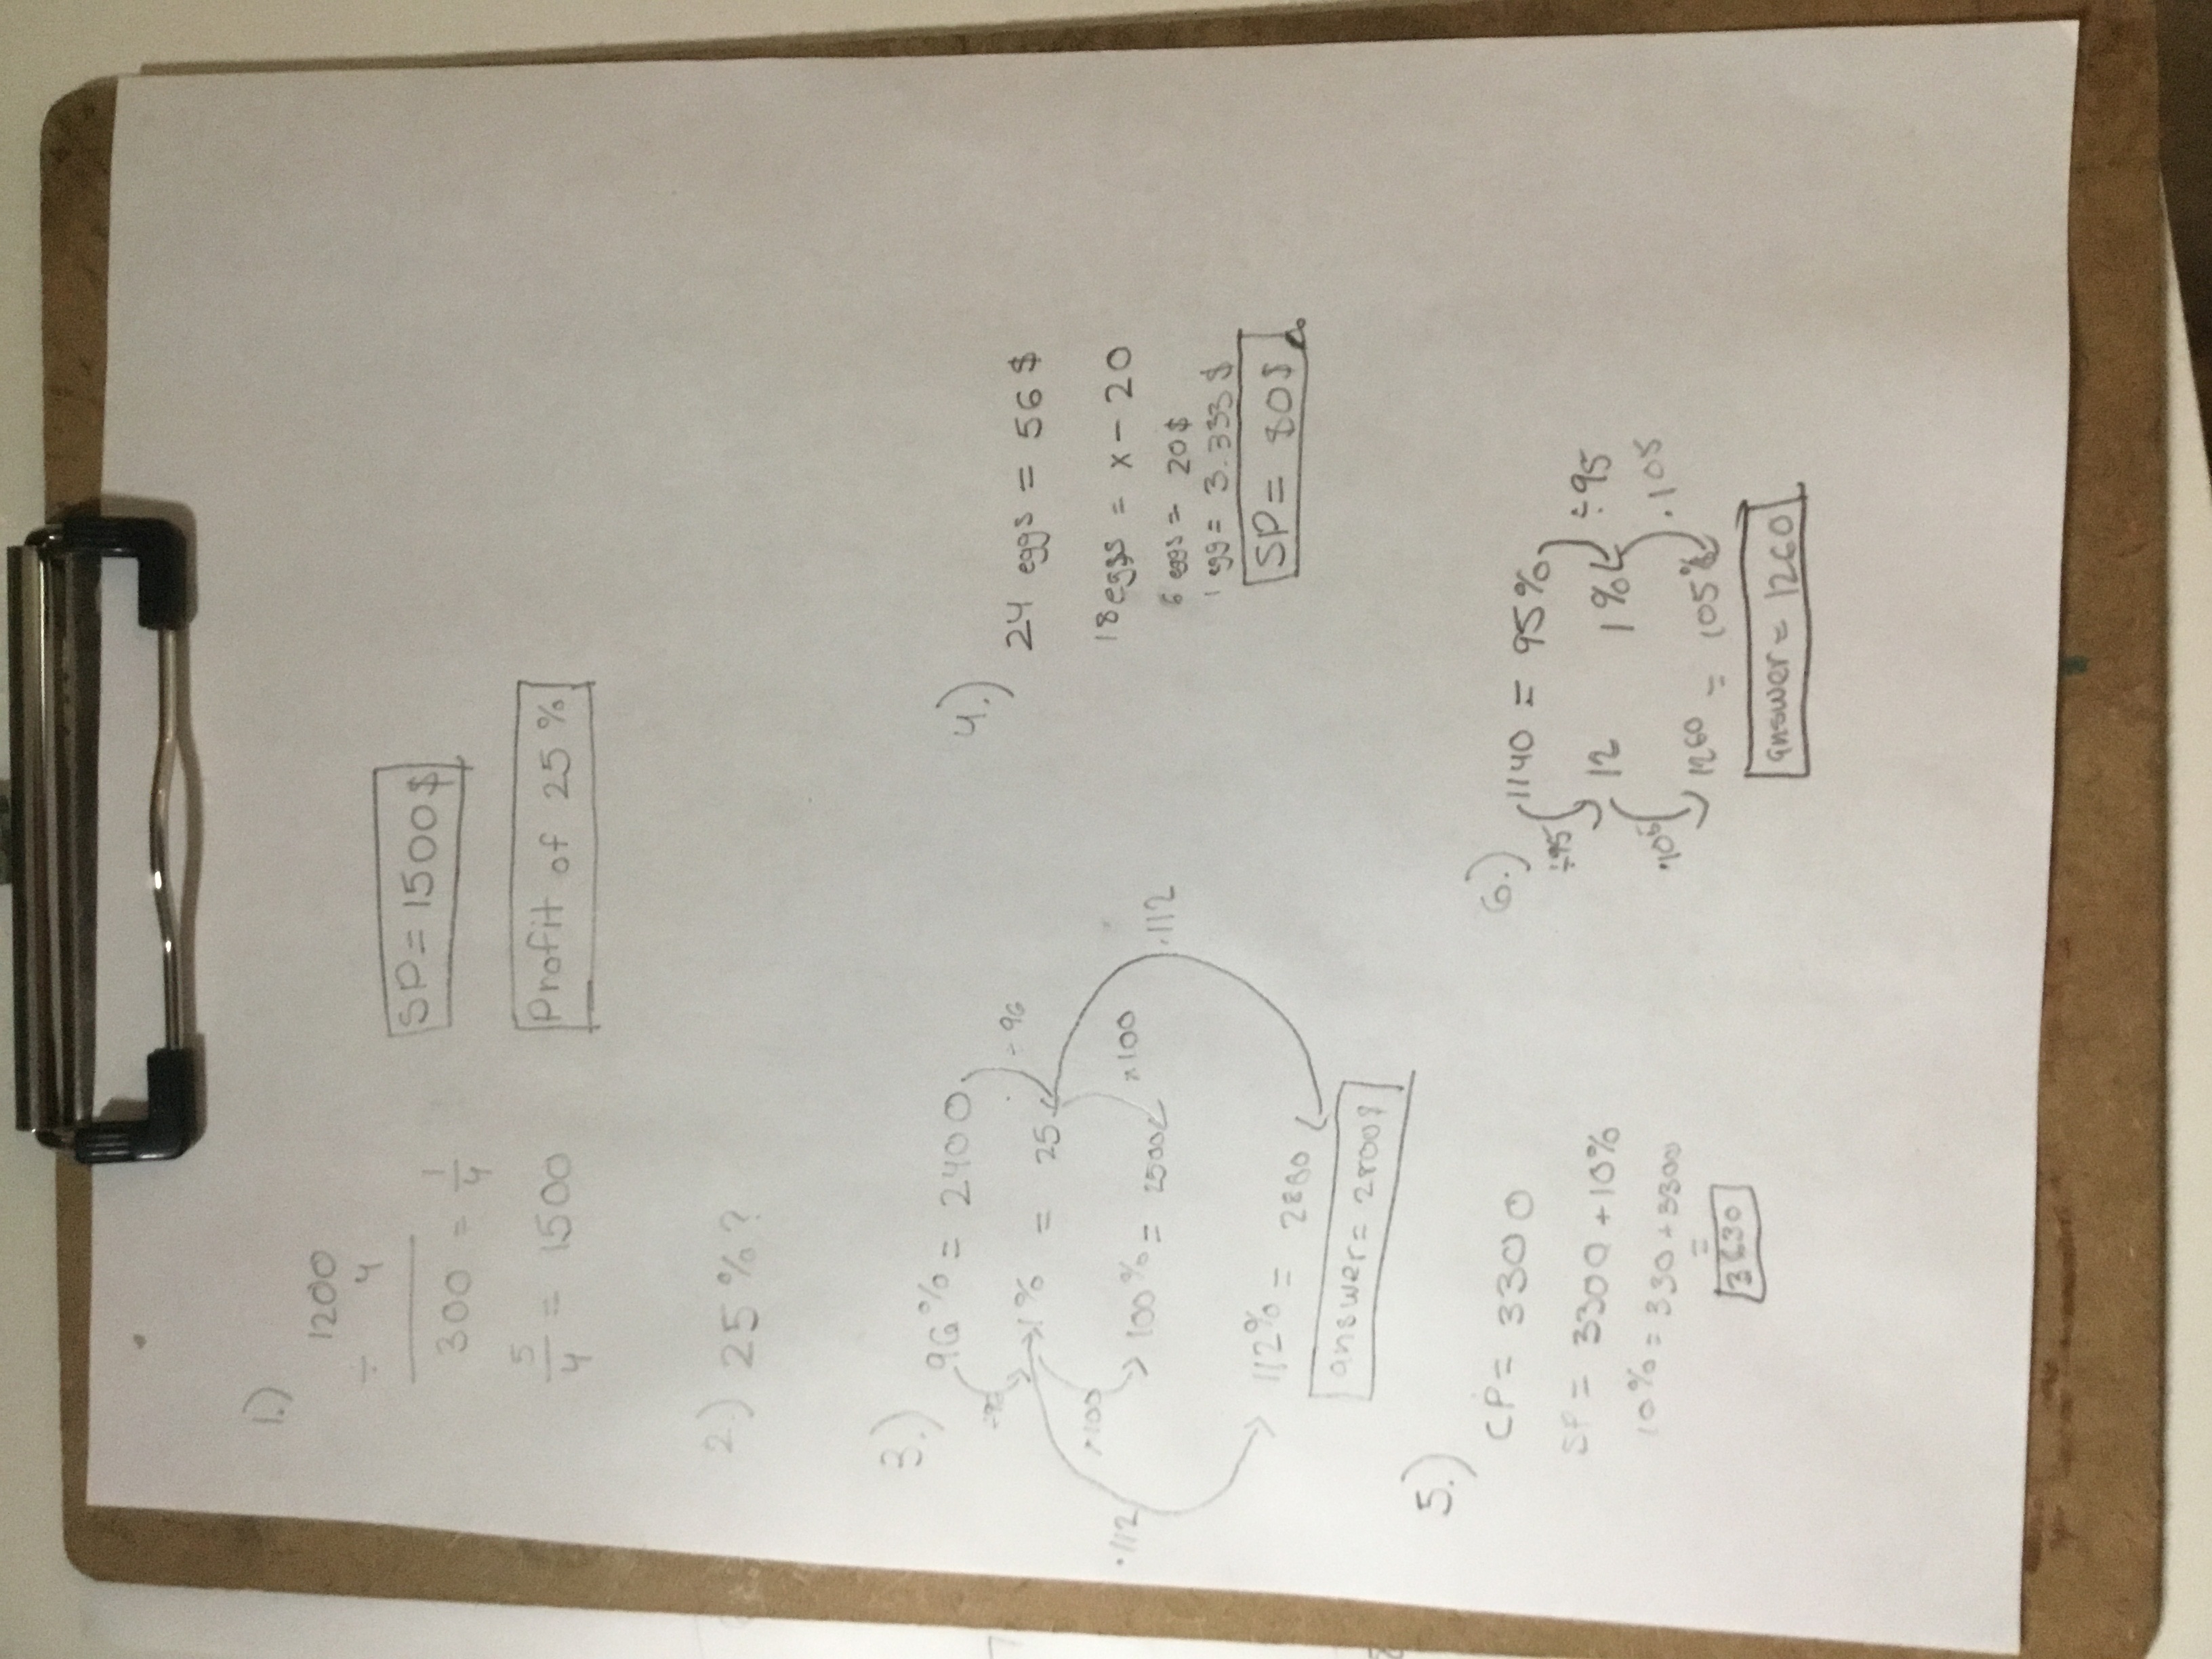 1.)
1200
÷ 4
300 = 1/4
5/4 = 1500
SP = 1500$
Profit of 25%
2.) 25%?
3.)
96% = 2400
÷ 96
1% = 25
×100 ×100
100% = 2500
·112 ·112
112% =
answer = 2800$
4.)
24 eggs = 56$
18 eggs = x - 20
6 eggs = 20$
1 egg = 3.333$
SP = 80$
5.)
CP = 3300
SP = 3300 + 10%
10% = 330 + 3300
=
3630
6.)
1140 = 95%
÷95 ÷95
12 1%
·105 ·105
1260 = 105%
answer = 1260